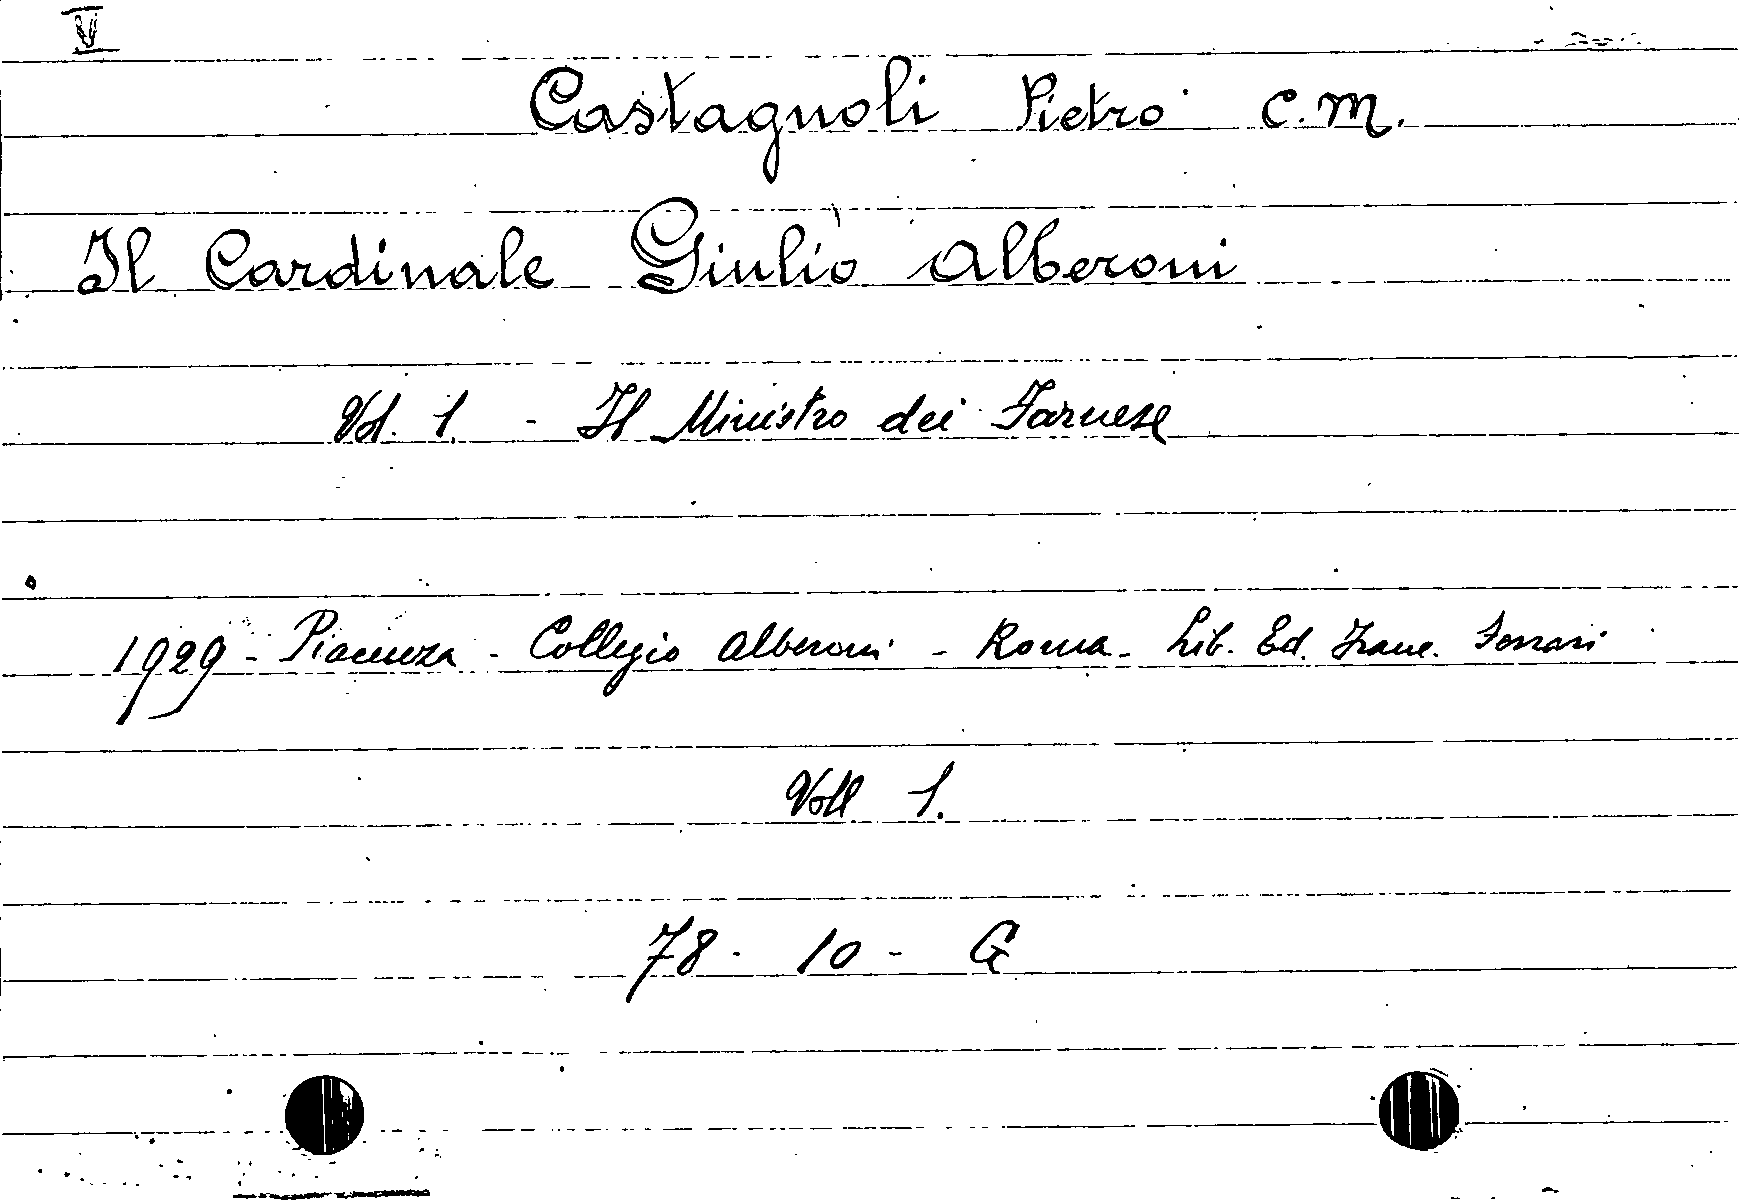 V
Castagnoli Pietro C.M.
Il Cardinale Giulio Alberoni
Vol. 1. - Il Ministro dei Farnese
1929 - Piacenza - Collegio Alberoni - Roma - Lib. Ed. Franc. Ferrari
Voll 1.
78 - 10 - G